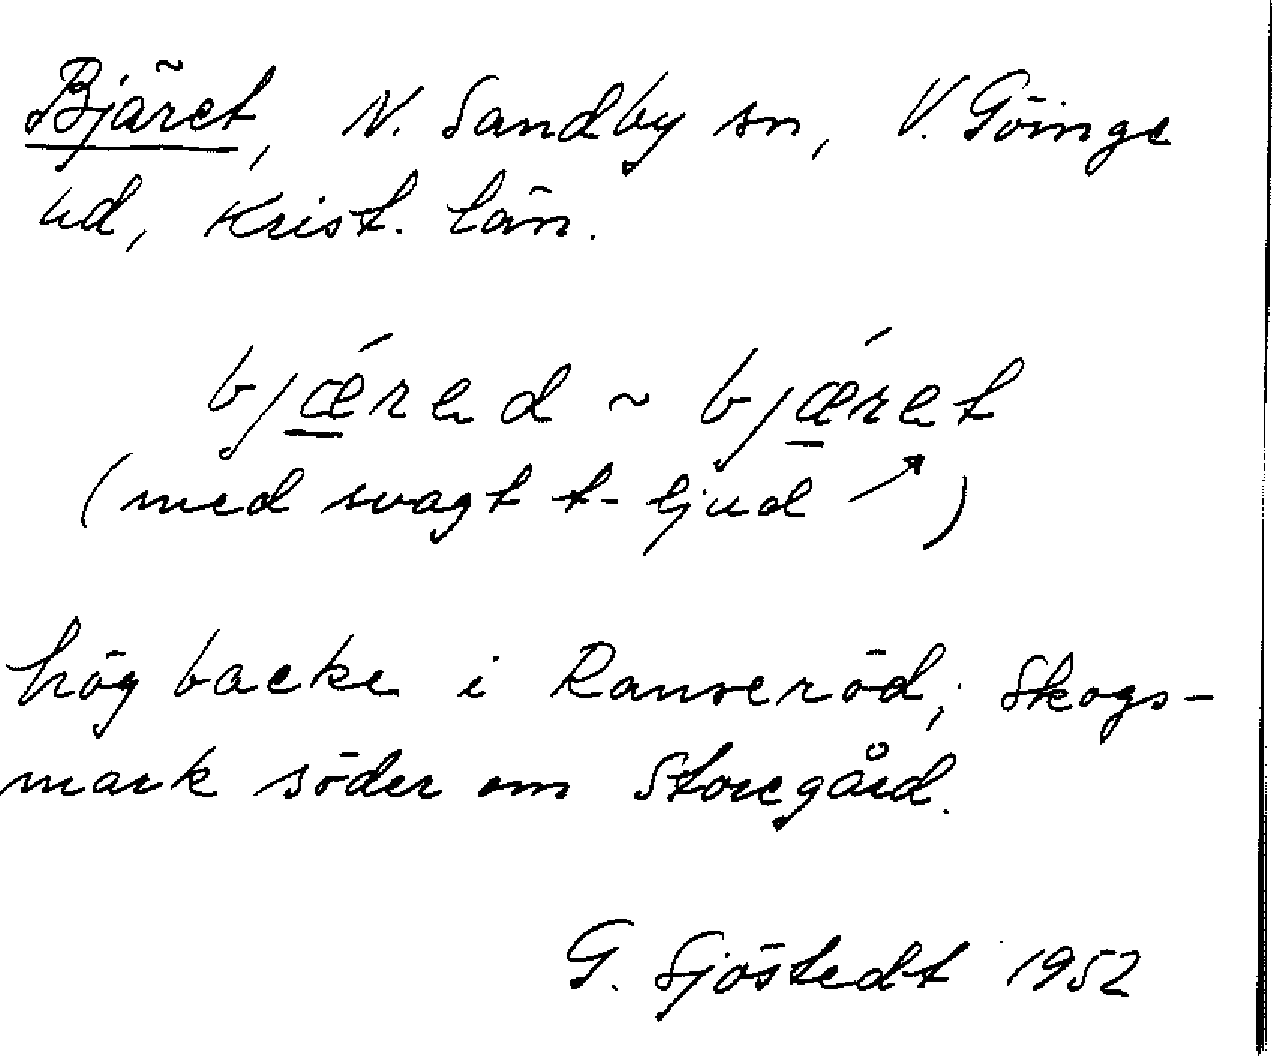 Bjäret, N. Sandby sn, V. Göinge
hd, Krist. län.
bjǽred ~ bjǽret
(med svagt t-ljud ↗)
hög backe i Ranseröd; Skogs-
mark söder om Storegård.
G. Sjöstedt 1952